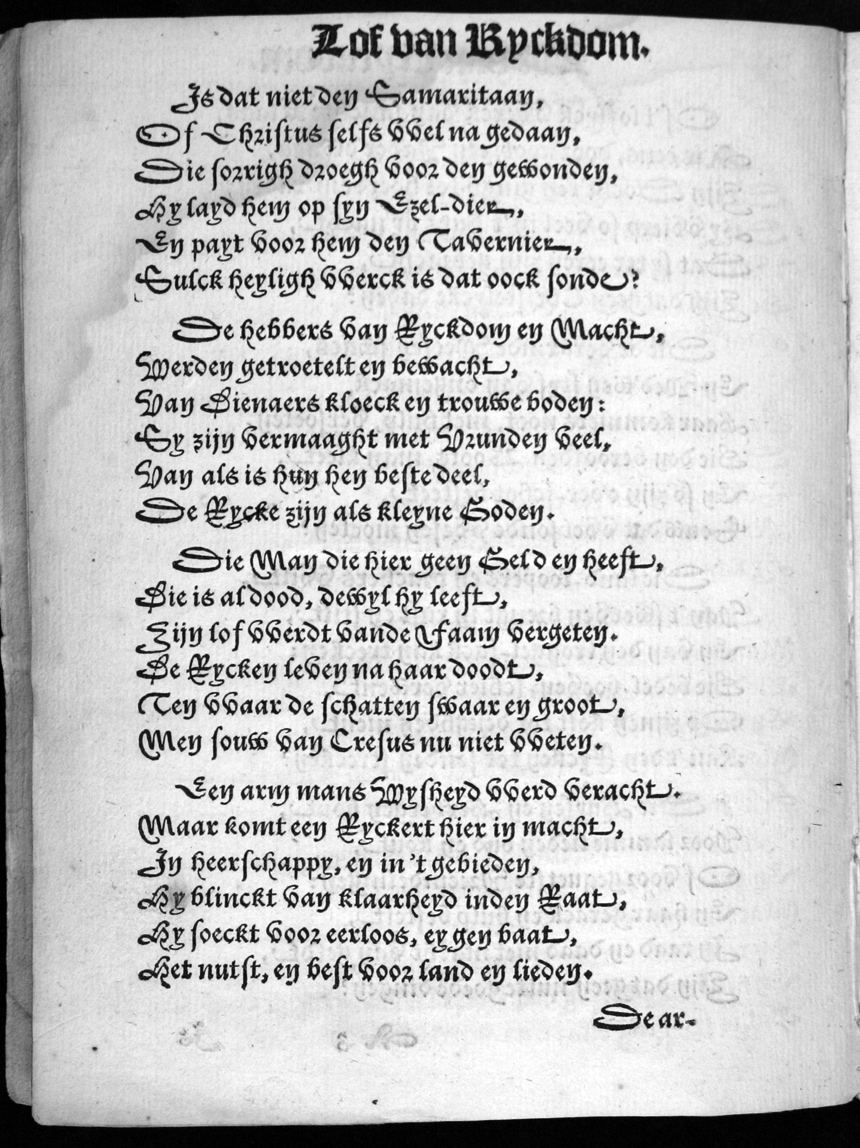 Lof van Ryckdom.
Is dat niet den Samaritaan,
Of Christus selfs vvel na gedaan,
Die sorrigh droegh voor den gewonden,
Hy layd hem op syn Ezel-dier,
En payt voor hem den Tavernier,
Sulck heyligh vverck is dat oock sonde?
De hebbers van Ryckdom en Macht,
Werden getroetelt en bewacht,
Van Dienaers kloeck en trouwe boden:
Sy zijn vermaaght met Vrunden veel,
Van als is hun hen beste deel,
De Rycke zijn als kleyne Goden.
Die Man die hier geen Geld en heeft,
Die is al dood, dewyl hy leeft,
Zijn lof vverdt vande Faam vergeten.
De Rycken leven na haar doodt,
Ten vvaar de schatten swaar en groot,
Men souw van Cresus nu niet vveten.
Een arm mans Wysheyd vverd veracht.
Maar komt een Ryckert hier in macht,
In heerschappy, en in 't gebieden,
Hy blinckt van klaarheyd inden Raat,
Hy soeckt voor eerloos, eygen baat,
Het nutst, en best voor land en lieden.
De ar-